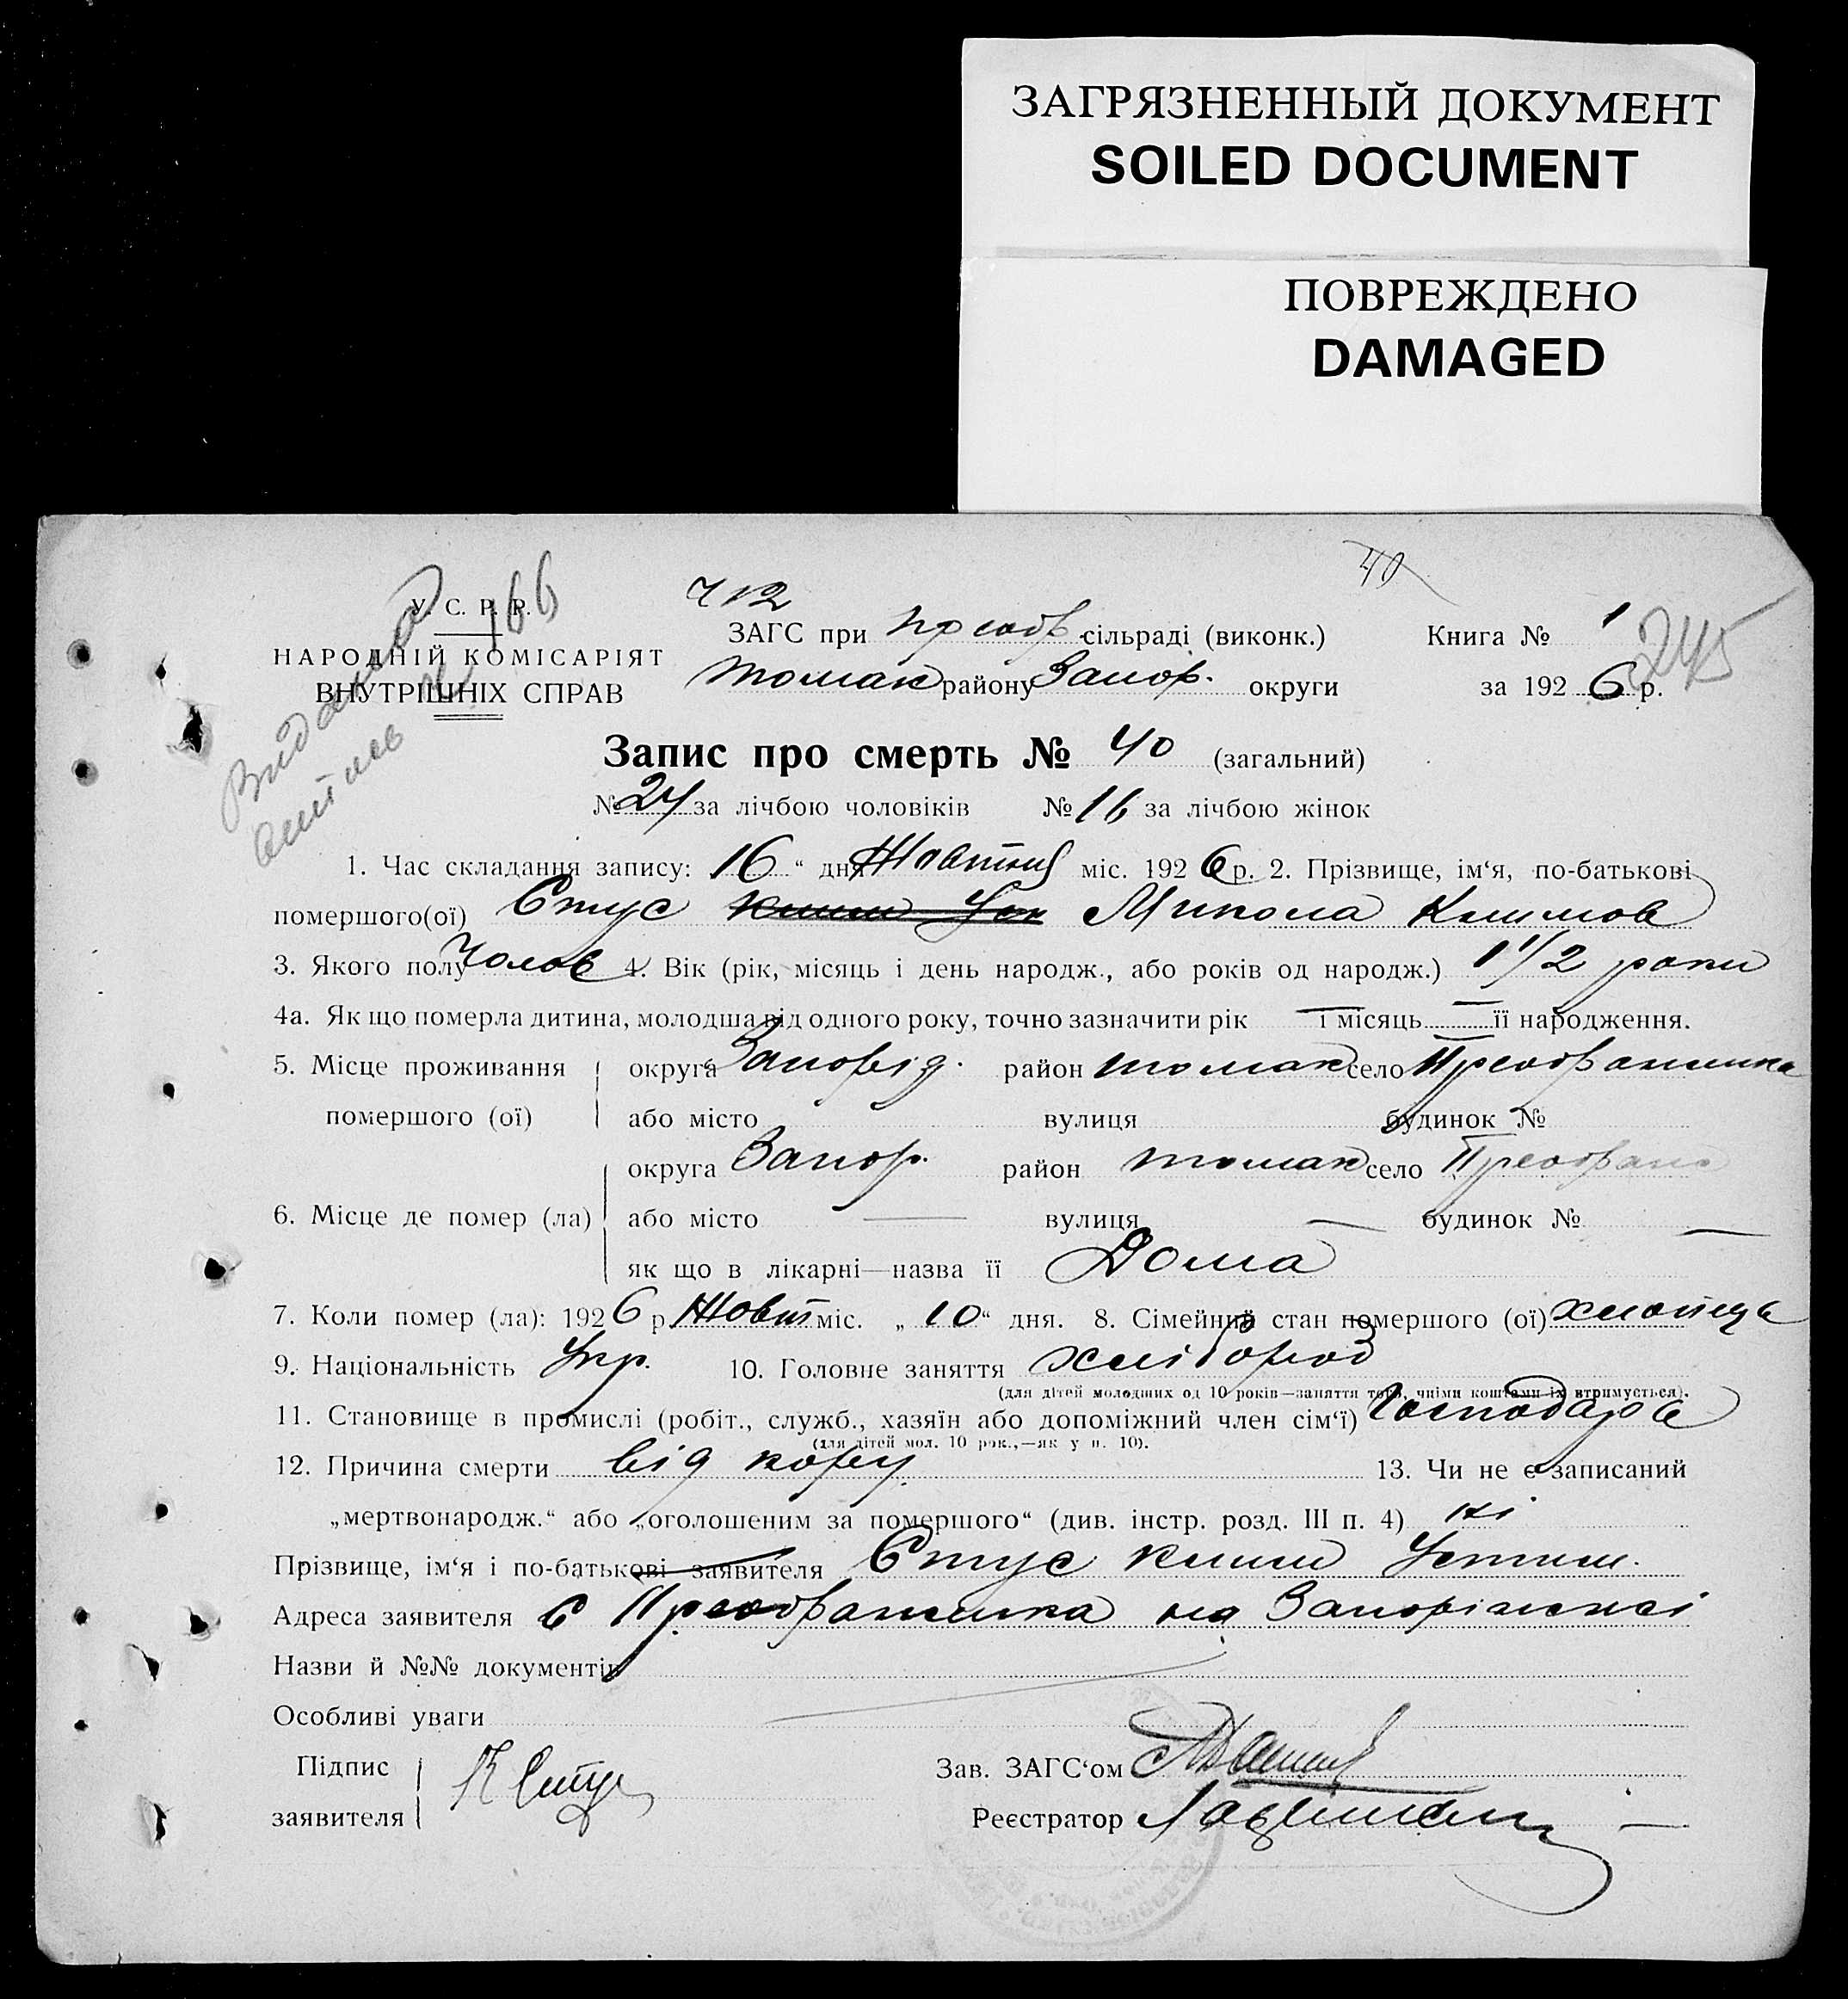 ЗАГРЯЗНЕННЫЙ ДОКУМЕНТ
SOILED DOCUMENT
ПОВРЕЖДЕНО
DAMAGED
40
У. С. Р. Р.
166
412
НАРОДНІЙ КОМІСАРІЯТ
ВНУТРІШНІХ СПРАВ
ЗАГС при Преобр сільраді (виконк.)
Книга № 1
245
Томак району Запор. округи
за 192 6 р.
Запис про смерть № 40 (загальний)
№ 24 за лічбою чоловіків № 16 за лічбою жінок
1. Час складання запису: 16 “ дня Жовтня міс. 192 6 р. 2. Прізвище, ім‘я, по-батькові
помершого(ої) Стус Микола Климов
3. Якого полу Чолов 4. Вік (рік, місяць і день народж., або років од народж.) 1 1/2 роки
4а. Як що померла дитина, молодша від одного року, точно зазначити рік — і місяць — її народження.
5. Місце проживання
помершого (ої)
округа Запоріз. район Томак село Преображенка
або місто вулиця будинок №
6. Місце де помер (ла)
округа Запор. район Томак село Преображ
або місто — вулиця — будинок № —
як що в лікарні—назва її Дома
7. Коли помер (ла): 192 6 р. Жовт міс. „ 10 “ дня. 8. Сімейний стан помершого (ої) хлопець
9. Національність Укр. 10. Головне заняття хлібороб
(для дітей молодших од 10 років—заняття того, чиїми коштами їх втримується).
11. Становище в промислі (робіт., служб., хазяїн або допоміжний член сім‘ї) Господарів
(для дітей мол. 10 рок.,—як у п. 10).
12. Причина смерти від кору 13. Чи не є записаний
„мертвонародж.“ або „оголошеним за помершого“ (див. інстр. розд. III п. 4) ні
Прізвище, ім‘я і по-батькові заявителя Стус Клим Устим.
Адреса заявителя с Преображенка на Запоріжжі
Назви й №№ документів
Особливі уваги
Підпис
заявителя
К Стус
Зав. ЗАГС‘ом
Реєстратор